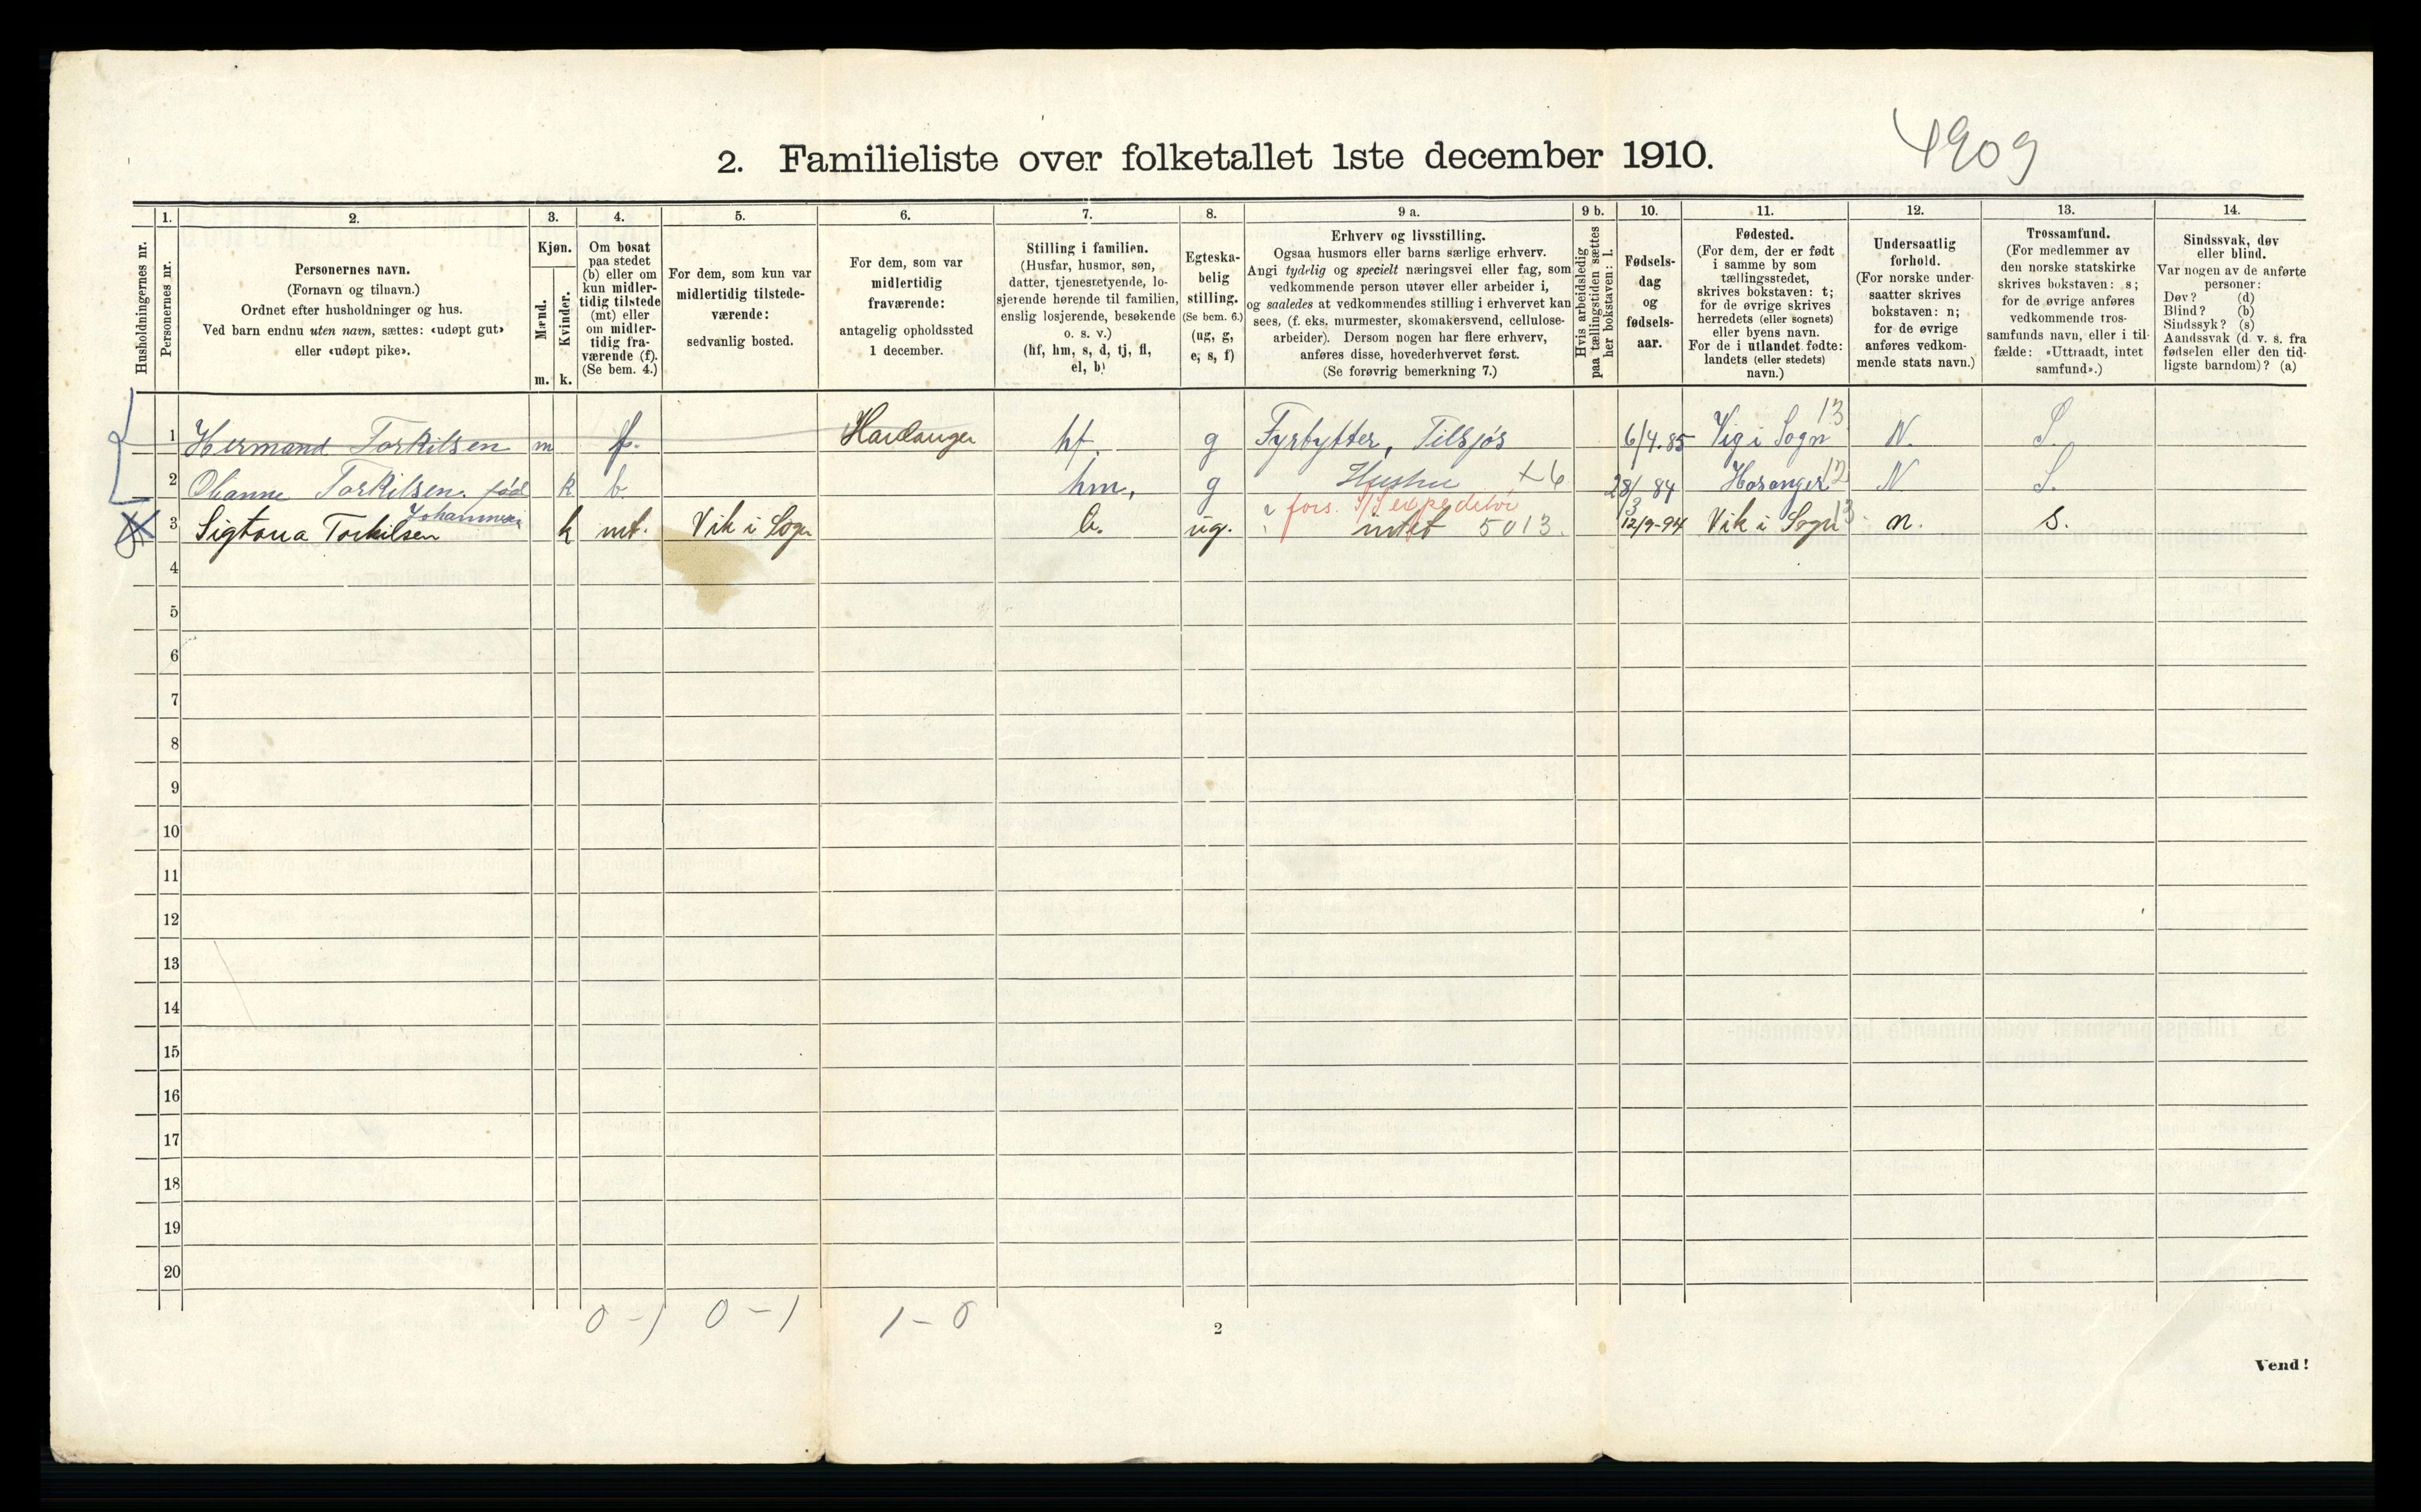 2. Familieliste over folketallet 1ste december 1910.
4909
Husholdningernes nr.
1.
Personernes nr.
2.
Personernes navn.
(Fornavn og tilnavn.)
Ordnet efter husholdninger og hus.
Ved barn endnu uten navn, sættes: «udøpt gut»
eller «udøpt pike».
3.
Kjøn.
Mænd.
Kvinder.
m. k.
4.
Om bosat
paa stedet
(b) eller om
kun midler-
tidig tilstede
(mt) eller
om midler-
tidig fra-
værende (f).
(Se bem. 4.)
5.
For dem, som kun var
midlertidig tilstede-
værende:
sedvanlig bosted.
6.
For dem, som var
midlertidig
fraværende:
antagelig opholdssted
1 december.
7.
Stilling i familien.
(Husfar, husmor, søn,
datter, tjenestetyende, lo-
sjerende hørende til familien,
enslig losjerende, besøkende
o. s. v.)
(hf, hm, s, d, tj, fl,
el, b)
8.
Egteska-
belig
stilling.
(Se bem. 6.)
(ug, g,
e, s, f)
9 a.
Erhverv og livsstilling.
Ogsaa husmors eller barns særlige erhverv.
Angi tydelig og specielt næringsvei eller fag, som
vedkommende person utøver eller arbeider i,
og saaledes at vedkommendes stilling i erhvervet kan
sees, (f. eks. murmester, skomakersvend, cellulose-
arbeider). Dersom nogen har flere erhverv,
anføres disse, hovederhvervet først.
(Se forøvrig bemerkning 7.)
9 b.
Hvis arbeidsledig
paa tællingstiden sættes
her bokstaven: l.
10.
Fødsels-
dag
og
fødsels-
aar.
11.
Fødested.
(For dem, der er født
i samme by som
tællingsstedet,
skrives bokstaven: t;
for de øvrige skrives
herredets (eller sognets)
eller byens navn.
For de i utlandet fødte:
landets (eller stedets)
navn.)
12.
Undersaatlig
forhold.
(For norske under-
saatter skrives
bokstaven: n;
for de øvrige
anføres vedkom-
mende stats navn.)
13.
Trossamfund.
(For medlemmer av
den norske statskirke
skrives bokstaven: s;
for de øvrige anføres
vedkommende tros-
samfunds navn, eller i til-
fælde: «Uttraadt, intet
samfund».)
14.
Sindssvak, døv
eller blind.
Var nogen av de anførte
personer:
Døv? (d)
Blind? (b)
Sindssyk? (s)
Aandssvak (d. v. s. fra
fødselen eller den tid-
ligste barndom)? (a)
1 Hermand Torkilsen m f. Hardanger hf. g Fyrbytter, Tilsjøs 6/4.85 Vig i Sogn 13 N. S.
2 Olianne Torkilsen. fød k b. hm, g Hustru +6 28/3 84 Hosanger 12 N S.
Johannesen
fors. expeditør
3 Sigtona Torkilsen k mt. Vik i Sogn b. ug. intet 5013. 12/9-94 Vik i Sogn 13 n. s.
4
5
6
7
8
9
10
11
12
13
14
15
16
17
18
19
20
0-1 0-1 1-0
2
Vend!